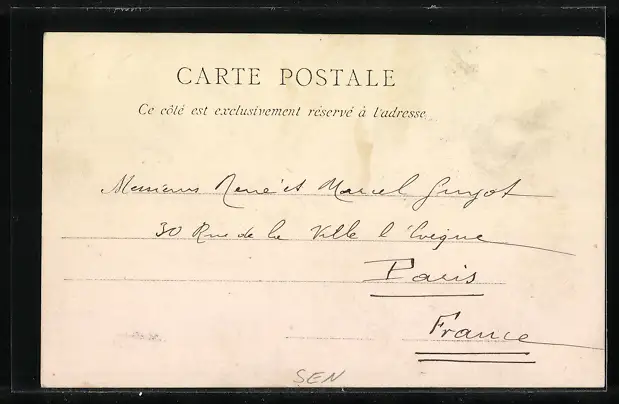 CARTE POSTALE
Ce côté est exclusivement réservé à l'adresse
Messieurs René et Marcel Guyot
30 Rue de la Ville l'Evêque
Paris
France
SEN